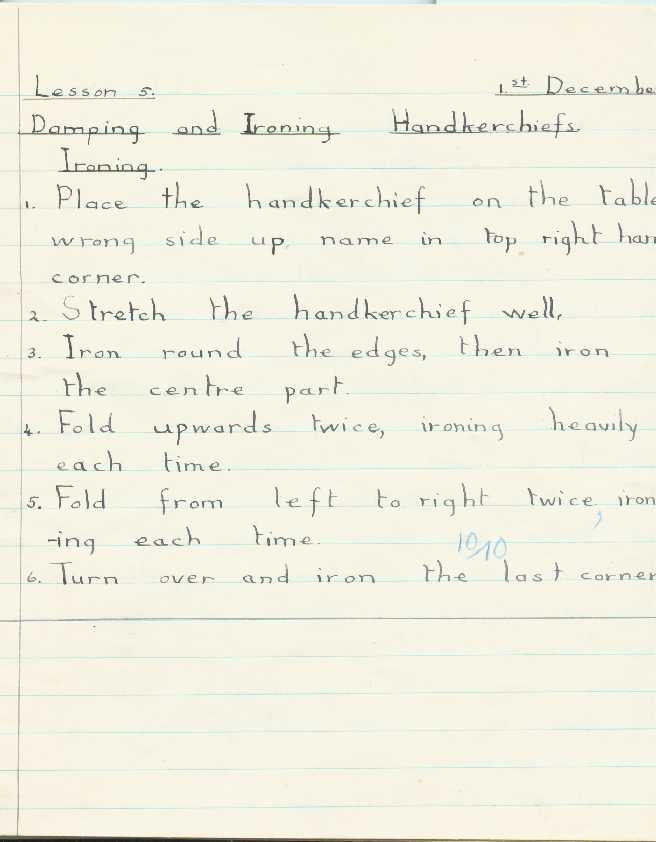 Lesson 5. 1.st. Decembe
Damping and Ironing Handkerchiefs.
Ironing.
1. Place the handkerchief on the table
wrong side up, name in top right han
corner.
2. Stretch the handkerchief well,
3. Iron round the edges, then iron
the centre part.
4. Fold upwards twice, ironing heavily
each time.
5. Fold from left to right twice, iron
-ing each time.
10/10
6. Turn over and iron the last corner